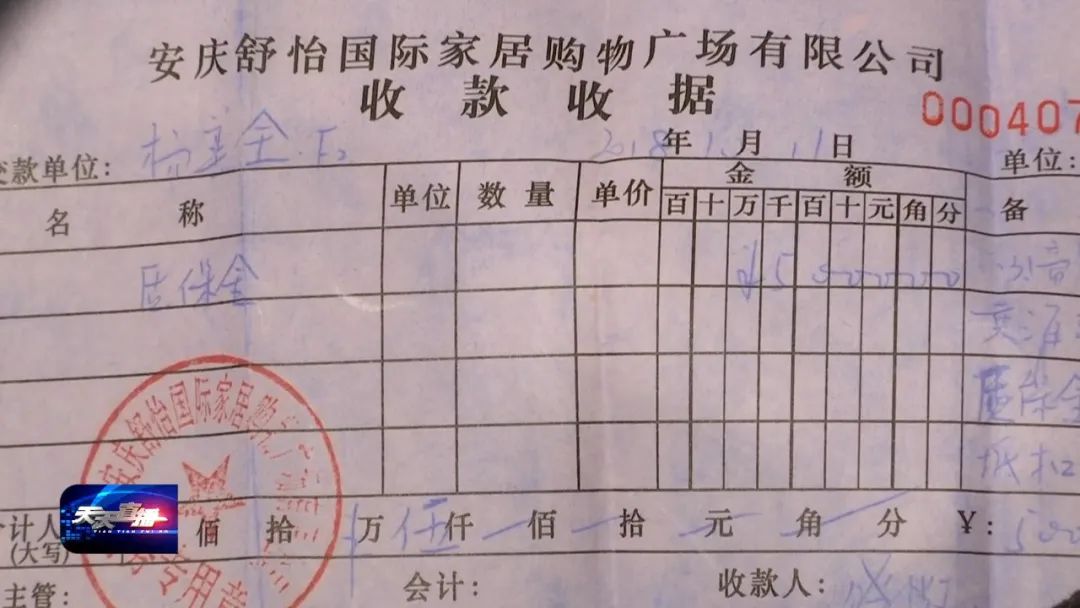 安庆舒怡国际家居购物广场有限公司
收款收据
000407
交款单位: 2018年 1月 11日 单位:
名称 单位 数量 单价 金额 备
百十万千百十元角分
质保金 ¥500000
质保金
抵扣
安庆舒怡国际家居购物广
专用章
天天直播
TIAN TIAN ZHI BO
合计人
(大写) 佰 拾 万 伍仟 佰 拾 元 角 分 ¥: 500
主管: 会计: 收款人: